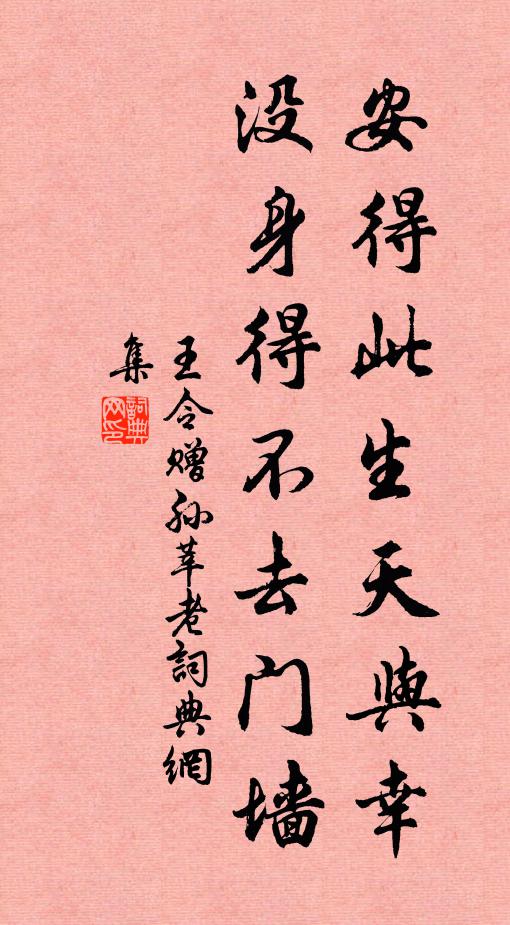 安得此生天與幸
没身得不去门墙
王令赠孙莘老詞典網
集
詞典网印